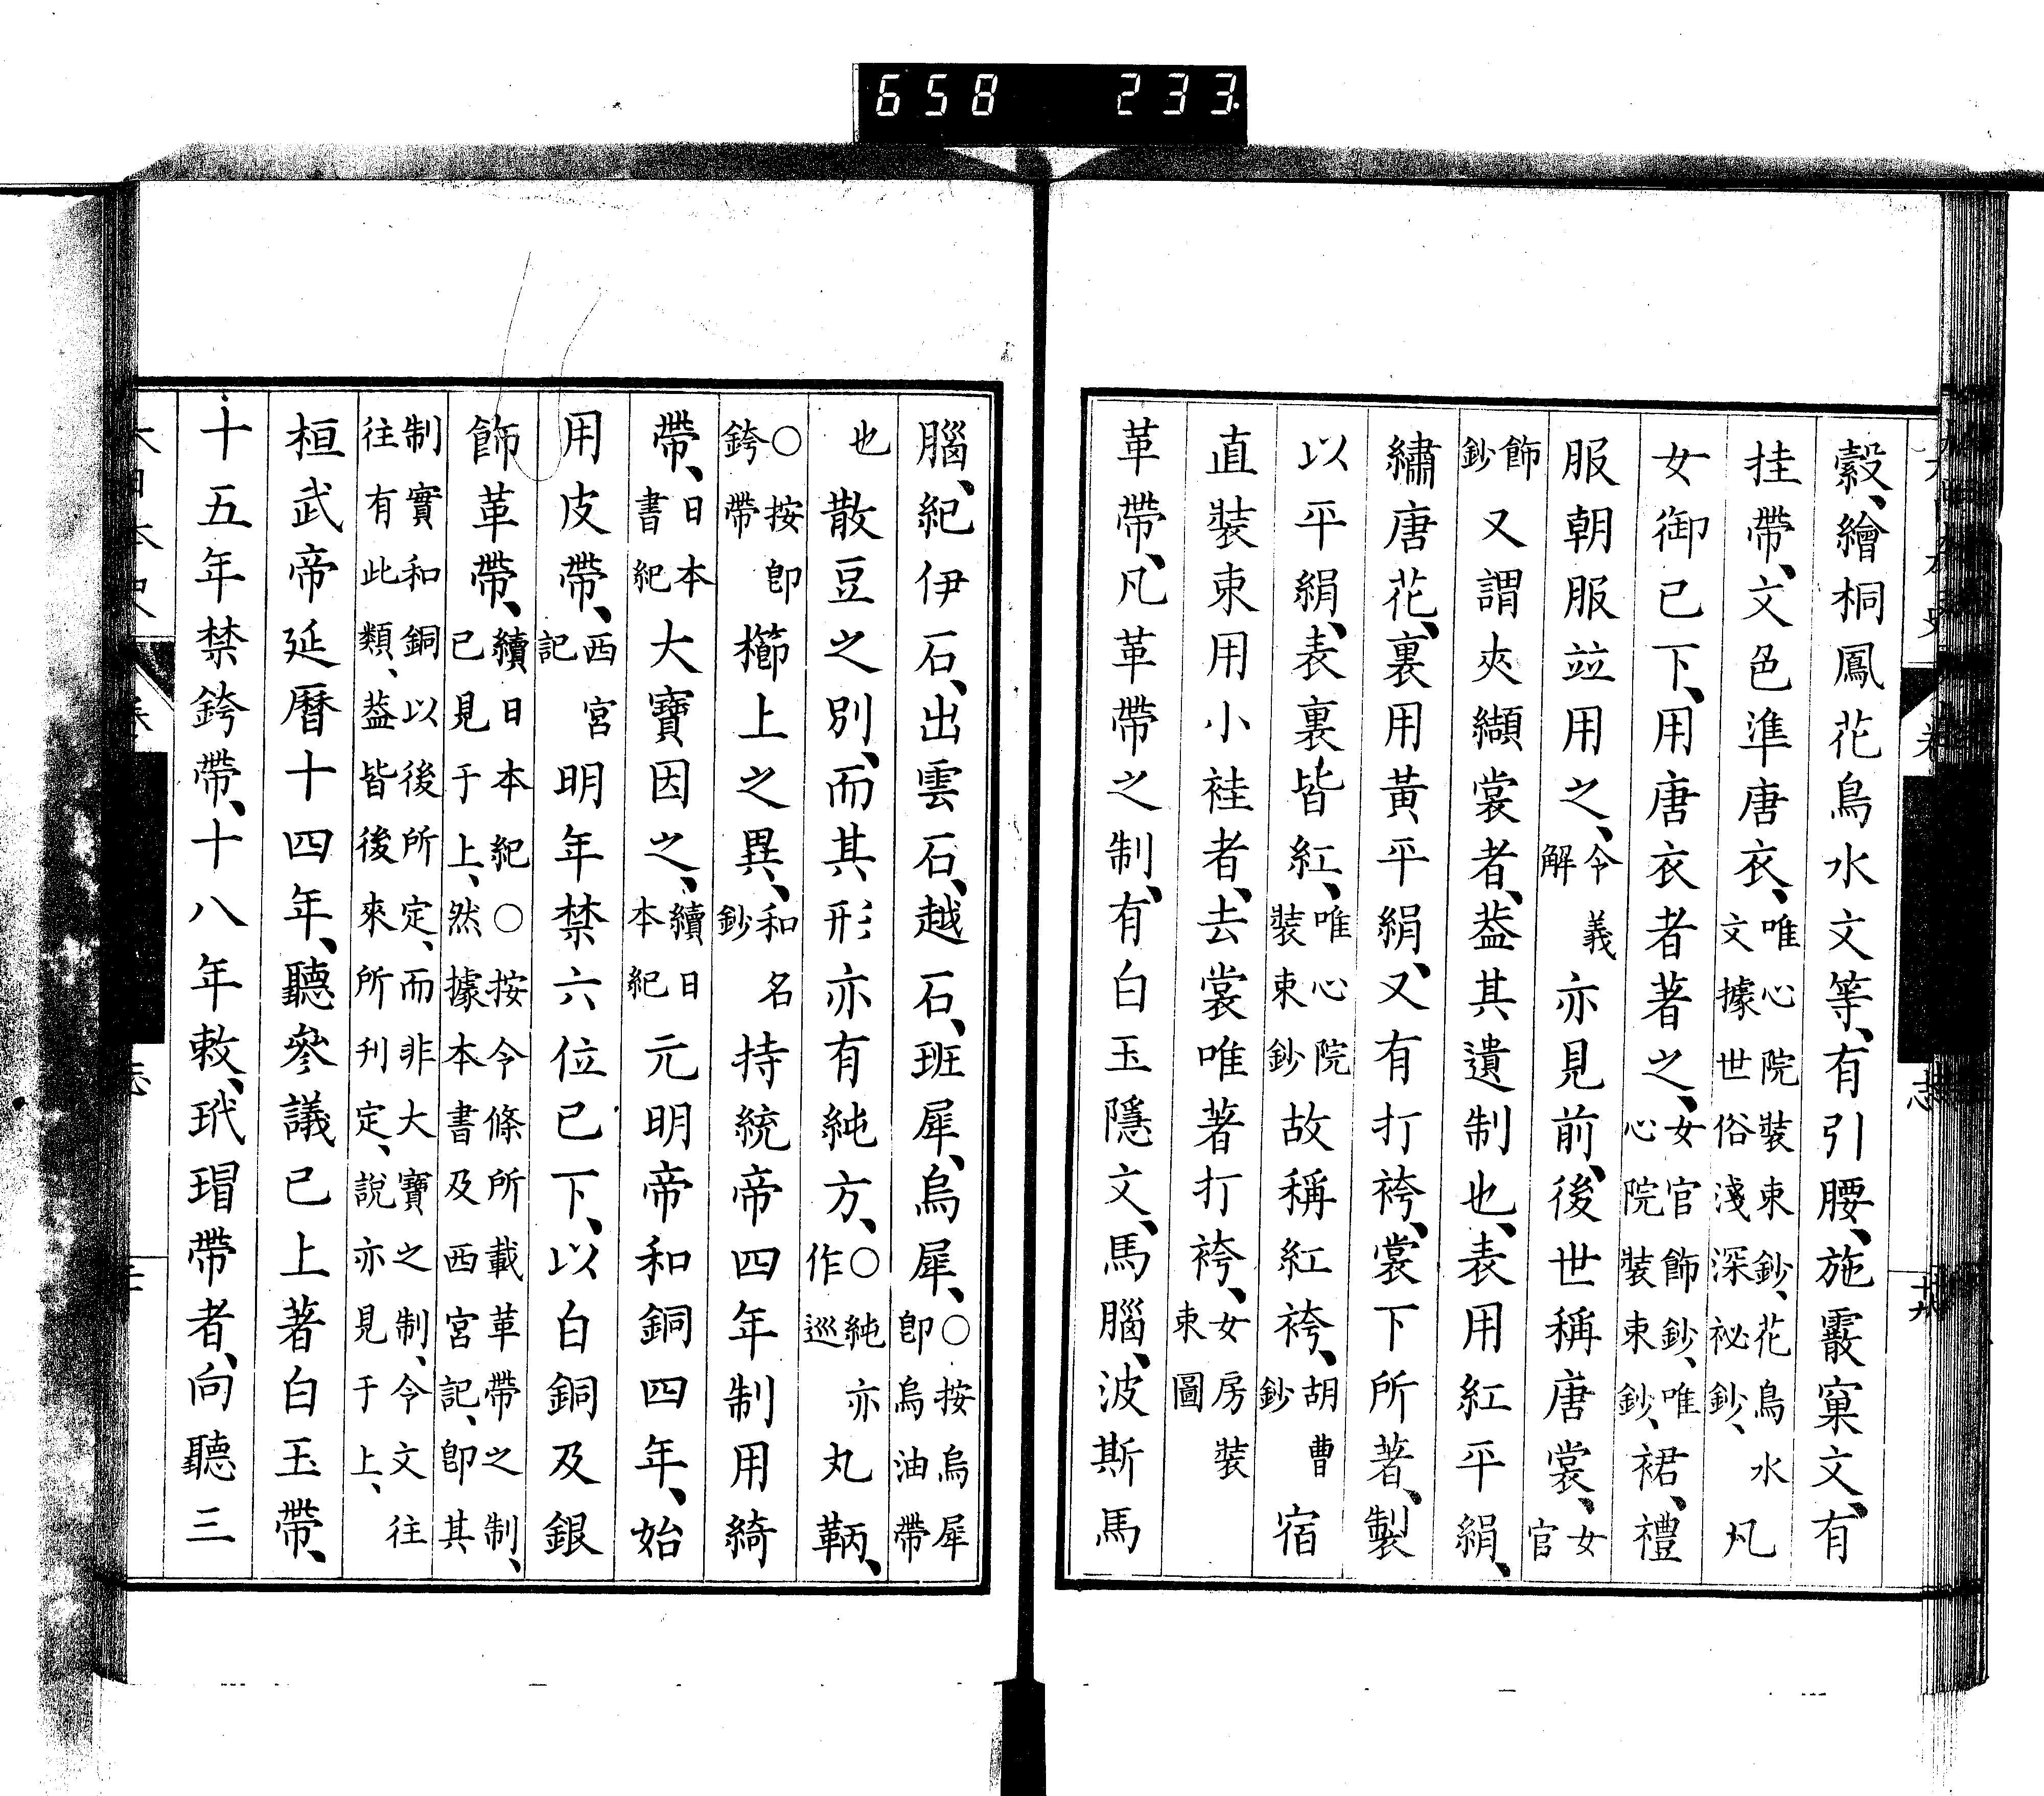 658 233
縠、繪桐鳳花鳥水文等、有引腰、施霰窠文、有
挂帶、文色準唐衣、唯心院裝束鈔、花鳥水文據世俗淺深祕鈔、凡
女御已下、用唐衣者著之、女官飾鈔、唯心院裝束鈔、裙、禮
服朝服竝用之、令義解亦見前、後世稱唐裳、女官
飾鈔又謂夾纈裳者、葢其遺制也、表用紅平絹、
繡唐花、裏用黃平絹、又有打袴、裳下所著、製
以平絹、表裏皆紅、唯心院裝束鈔故稱紅袴、胡曹鈔宿
直裝束用小袿者、去裳唯著打袴、女房裝束圖
革帶、凡革帶之制、有白玉隱文、馬腦、波斯馬
腦、紀伊石、出雲石、越石、班犀、烏犀、○按烏犀卽烏油帶
也散豆之別、而其形亦有純方、○純亦作巡丸鞆、
○按卽銙帶櫛上之異、和名鈔持統帝四年制用綺
帶、日本書紀大寶因之、續日本紀元明帝和銅四年、始
用皮帶、西宮記明年禁六位已下、以白銅及銀
飾革帶、續日本紀○按令條所載革帶之制、已見于上、然據本書及西宮記、卽其
制實和銅以後所定、而非大寶之制、令文往往有此類、葢皆後來所刊定、說亦見于上、
桓武帝延曆十四年、聽參議已上著白玉帶、
十五年禁銙帶、十八年敕、玳瑁帶者、向聽三